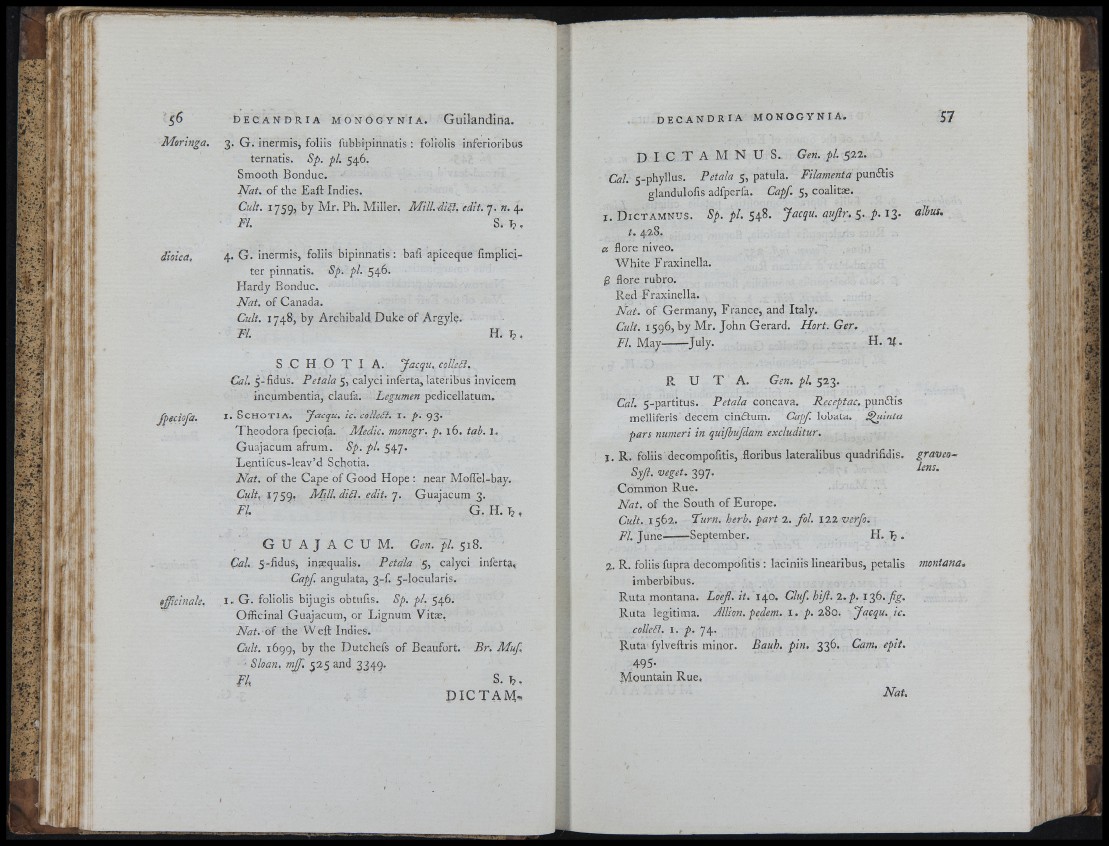 56 DECANDRIA MONOGYNIA. Guilandina.
Moringa. 3. G. inermis, foliis ſubbipinnatis : foliolis inferioribus
ternatis. Sp. pl. 546.
Smooth Bonduc.
Nat. of the Eaſt Indies.
Cult. 1759, by Mr. Ph. Miller. Mill. dict. edit. 7. n. 4.
Fl. S. ♄.
dioica. 4. G. inermis, foliis bipinnatis : baſi apiceque ſimplici-
ter pinnatis. Sp. pl. 546.
Hardy Bonduc.
Nat. of Canada.
Cult. 1748, by Archibald Duke of Argyle.
Fl. H. ♄.
SCHOTIA. Jacqu. collect.
Cal. 5-fidus. Petala 5, calyci inſerta, lateribus invicem
incumbentia, clauſa. Legumen pedicellatum.
ſpecioſa. 1. SCHOTIA. Jacqu. ic. collect. 1. p. 93.
Theodora ſpecioſa. Medic. monogr. p. 16. tab. 1.
Guajacum afrum. Sp. pl. 547.
Lentiſcus-leav'd Schotia.
Nat. of the Cape of Good Hope : near Moſſel-bay.
Cult. 1759. Mill. dict. edit. 7. Guajacum 3.
Fl. G. H. ♄.
GUAJACUM. Gen. pl. 518.
Cal. 5-fidus, inæqualis. Petala 5, calyci inſerta.
Capſ. angulata, 3-ſ. 5-locularis.
officinale. 1. G. foliolis bijugis obtuſis. Sp. pl. 546.
Officinal Guajacum, or Lignum Vitæ.
Nat. of the Weſt Indies.
Cult. 1699, by the Dutcheſs of Beaufort. Br. Muſ.
Sloan. mſſ. 525 and 3349.
Fl. S. ♄.
DICTAM-
DECANDRIA MONOGYNIA. 57
DICTAMNUS. Gen. pl. 522.
Cal. 5-phyllus. Petala 5, patula. Filamenta punctis
glanduloſis adſperſa. Capſ. 5, coalitæ.
1. DICTAMNUS. Sp. pl. 548. Jacqu. auſtr. 5. p. 13. albus.
t. 428.
α flore niveo.
White Fraxinella.
β flore rubro.
Red Fraxinella.
Nat. of Germany, France, and Italy.
Cult. 1596, by Mr. John Gerard. Hort. Ger.
Fl. May——July. H. ♃.
RUTA. Gen. pl. 523.
Cal. 5-partitus. Petala concava. Receptac. punctis
melliferis decem cinctum. Capſ. lobata. Quinta
pars numeri in quiſbuſdam excluditur.
1. R. foliis decompoſitis, floribus lateralibus quadrifidis. graveo-
Syſt. veget. 397. lens.
Common Rue.
Nat. of the South of Europe.
Cult. 1562. Turn. herb. part 2. fol. 122 verſo.
Fl. June——September. H. ♄.
2. R. foliis ſupra decompoſitis : laciniis linearibus, petalis montana.
imberbibus.
Ruta montana. Loefl. it. 140. Cluſ. hiſt. 2. p. 136. fig.
Ruta legitima. Allion. pedem. 1. p. 280. Jacqu. ic.
collect. 1. p. 74.
Ruta ſylveſtris minor. Bauh. pin. 336. Cam. epit.
495.
Mountain Rue.
Nat.